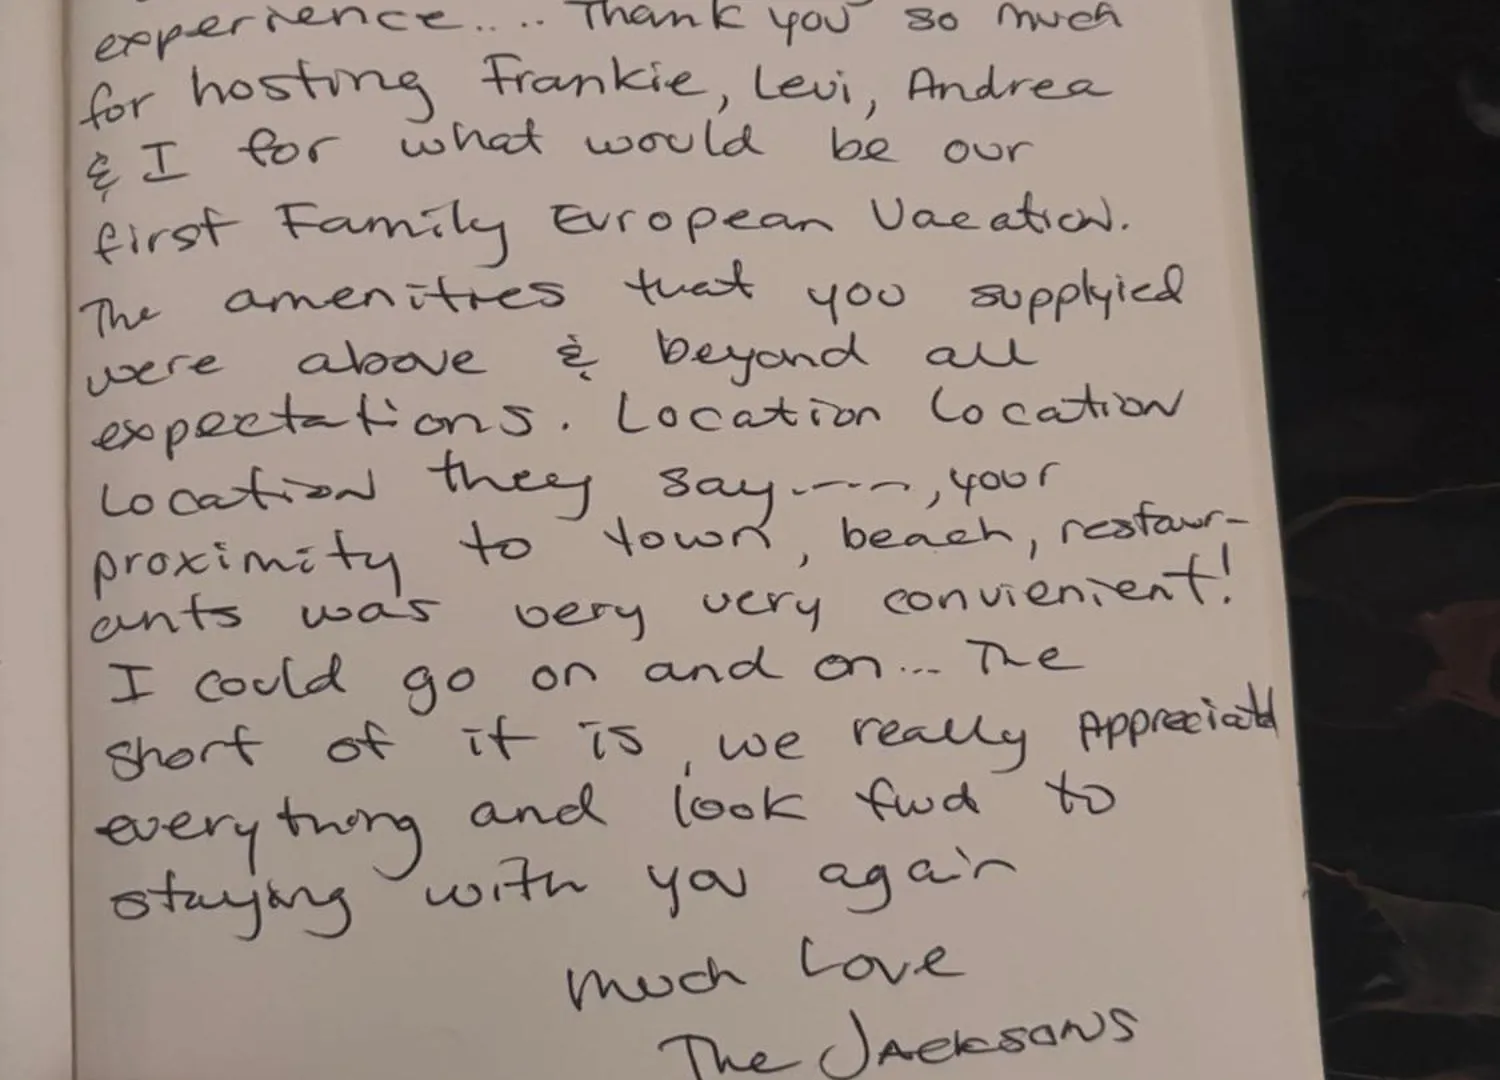 experience..... Thank you so much
for hosting Frankie, Levi, Andrea
& I for what would be our
first Family European Vacation.
The amenities that you supplyied
were above & beyond all
expectations. Location Location
Location they say....., your
proximity to town, beach, restaur-
ants was very very convienient!
I could go on and on... The
short of it is, we really Appreciatd
everything and look fwd to
staying with you again
Much Love
The Jacksons